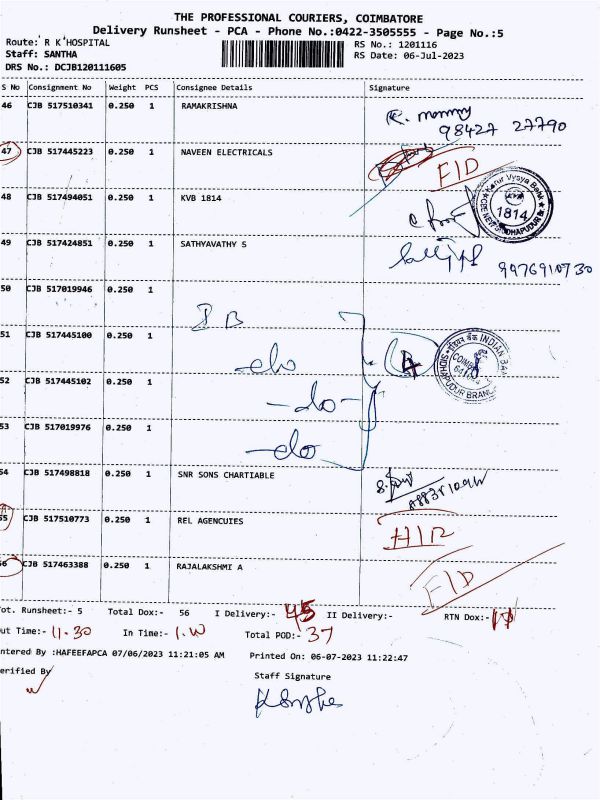 THE PROFESSIONAL COURIERS, COIMBATORE
Delivery Runsheet - PCA - Phone No.:0422-3505555 - Page No.:5
Route: R K HOSPITAL RS No.: 1201116
Staff: SANTHA RS Date: 06-Jul-2023
DRS No.: DCJB120111605
S No Consignment No Weight PCS Consignee Details Signature
46 CJB 517510341 0.250 1 RAMAKRISHNA
98427 27790
47 CJB 517445223 0.250 1 NAVEEN ELECTRICALS F/D
48 CJB 517494051 0.250 1 KVB 1814
Karur Vysya Bank
1814
49 CJB 517424851 0.250 1 SATHYAVATHY S
9976910730
50 CJB 517019946 0.250 1
I B
51 CJB 517445100 0.250 1
-do INDIAN BANK
SIDHAPUDUR BRANCH
52 CJB 517445102 0.250 1
-do-
53 CJB 517019976 0.250 1
-do
54 CJB 517498818 0.250 1 SNR SONS CHARTIABLE
55 CJB 517510773 0.250 1 REL AGENCUIES
56 CJB 517463388 0.250 1 RAJALAKSHMI A F/D
Tot. Runsheet:- 5 Total Dox:- 56 I Delivery:- 45 II Delivery:- RTN Dox:-
Out Time:- 11.30 In Time:- Total POD:- 37
Entered By :HAFEEFAPCA 07/06/2023 11:21:05 AM Printed On: 06-07-2023 11:22:47
Verified By Staff Signature